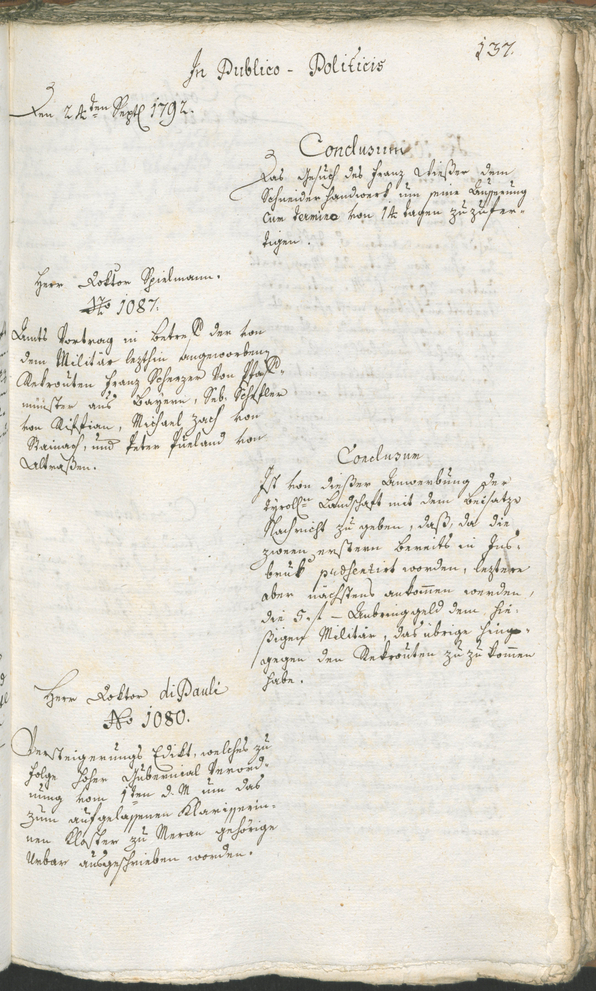 137.
In Publico - Politicis
Den 24ten Septb 1792.
Conclusum
Das Gesuch des Franz Mießer dem
Schneiderhandwerk um seine Äußerung
cum termino von 14 tagen zuzufer-
tigen.
Herr Doktor Spielmann.
No 1087.
Amts Vortrag in Betreff der von
dem Militär lezthin angeworbenen
Rekrouten Franz Scherzer von Pfaff-
münster aus Bayern, Seb: Schiftler
von Kistian, Michael Zach von
Rainach, und Peter Rueland von
Altraßen.
Conclusum
Ist von dießer Anwerbung der
tyrolln Landschaft mit dem beisatze
Nachricht zu geben, daß, da die
zween erstern bereits in Ins-
bruk präsentirt worden, leztere
aber nächstens ankommen werden,
die 5 f - Anbringgeld dem hie-
ßigen Militär, das übrige hinge-
gegen den Rekrouten zuzukommen
habe.
Herr Doktor diPauli
No 1080.
Versteigerungs Edikt, welches zu
folge hoher Gubernial Verord-
nung vom 1ten d. M um das
zum aufgelassenen Klarisserin-
nen Kloster zu Meran gehörige
Urbar ausgeschrieben worden.